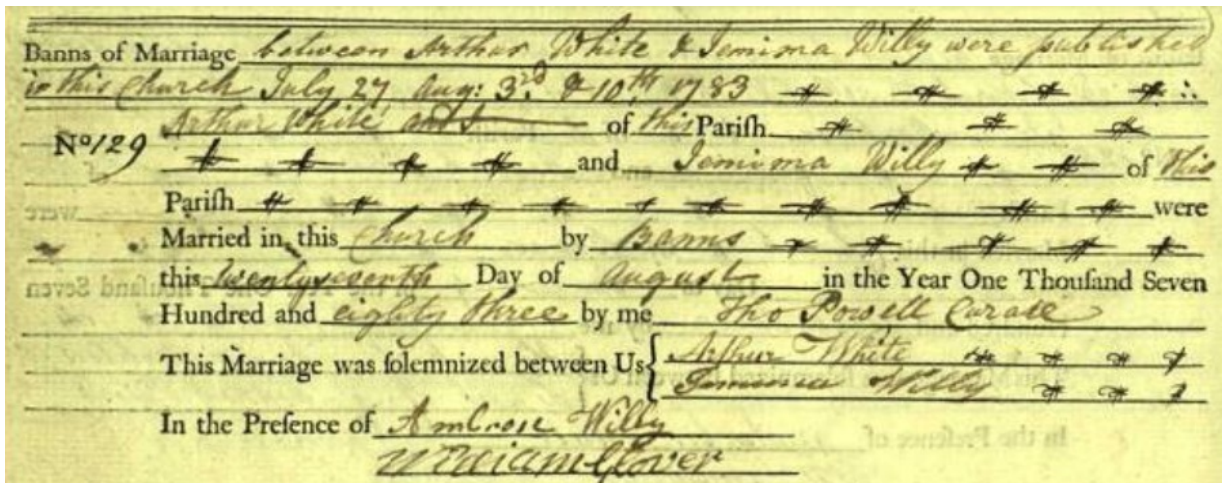 Banns of Marriage between Arthur White & Jemima Willy were published
in this Church July 27 Aug: 3.rd & 10th 1783
Arthur White and of this Parish
No 129
and Jemima Willy of this
Parish were
Married in this Church by Banns
this twentyseventh Day of August in the Year One Thousand Seven
Hundred and eighty three by me Tho Powell Curate
This Marriage was solemnized between Us { Arthur White
Jemima Willy
In the Presence of Ambrose Willy
William Glover